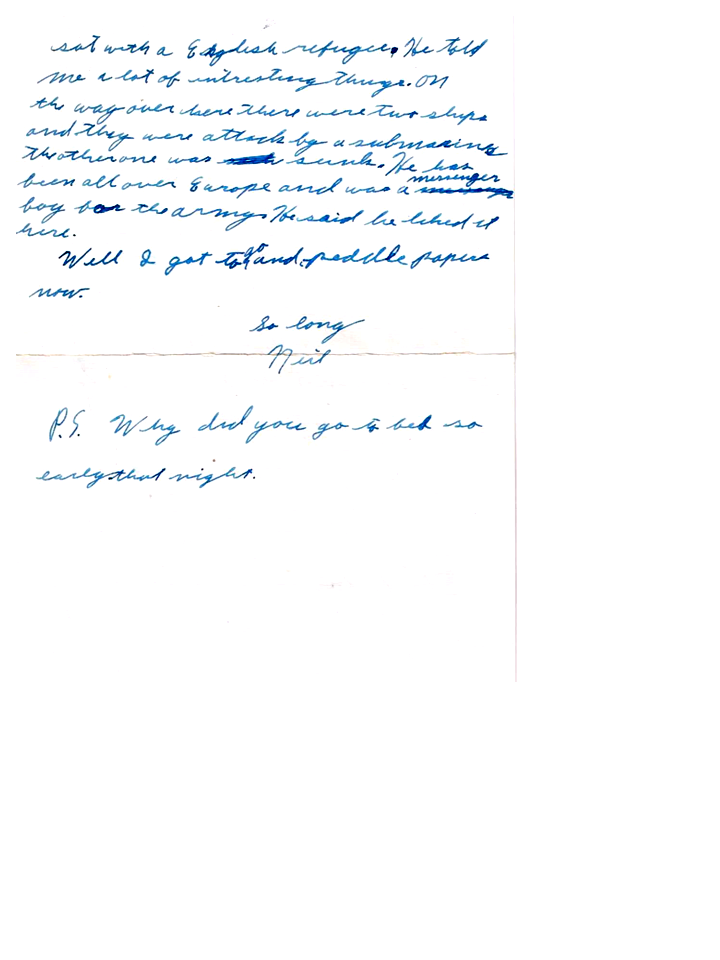 sat with a English refugee. He told
me a lot of intresting things. On
the way over here there were two ships
and they were attack by a submarine
the other one was sunk. He has
been all over Europe and was a messenger
boy for the army. He said he liked it
here.
Well I got to go and peddle papers
now.
So long
Neil
P.S. Why did you go to bed so
early that night.